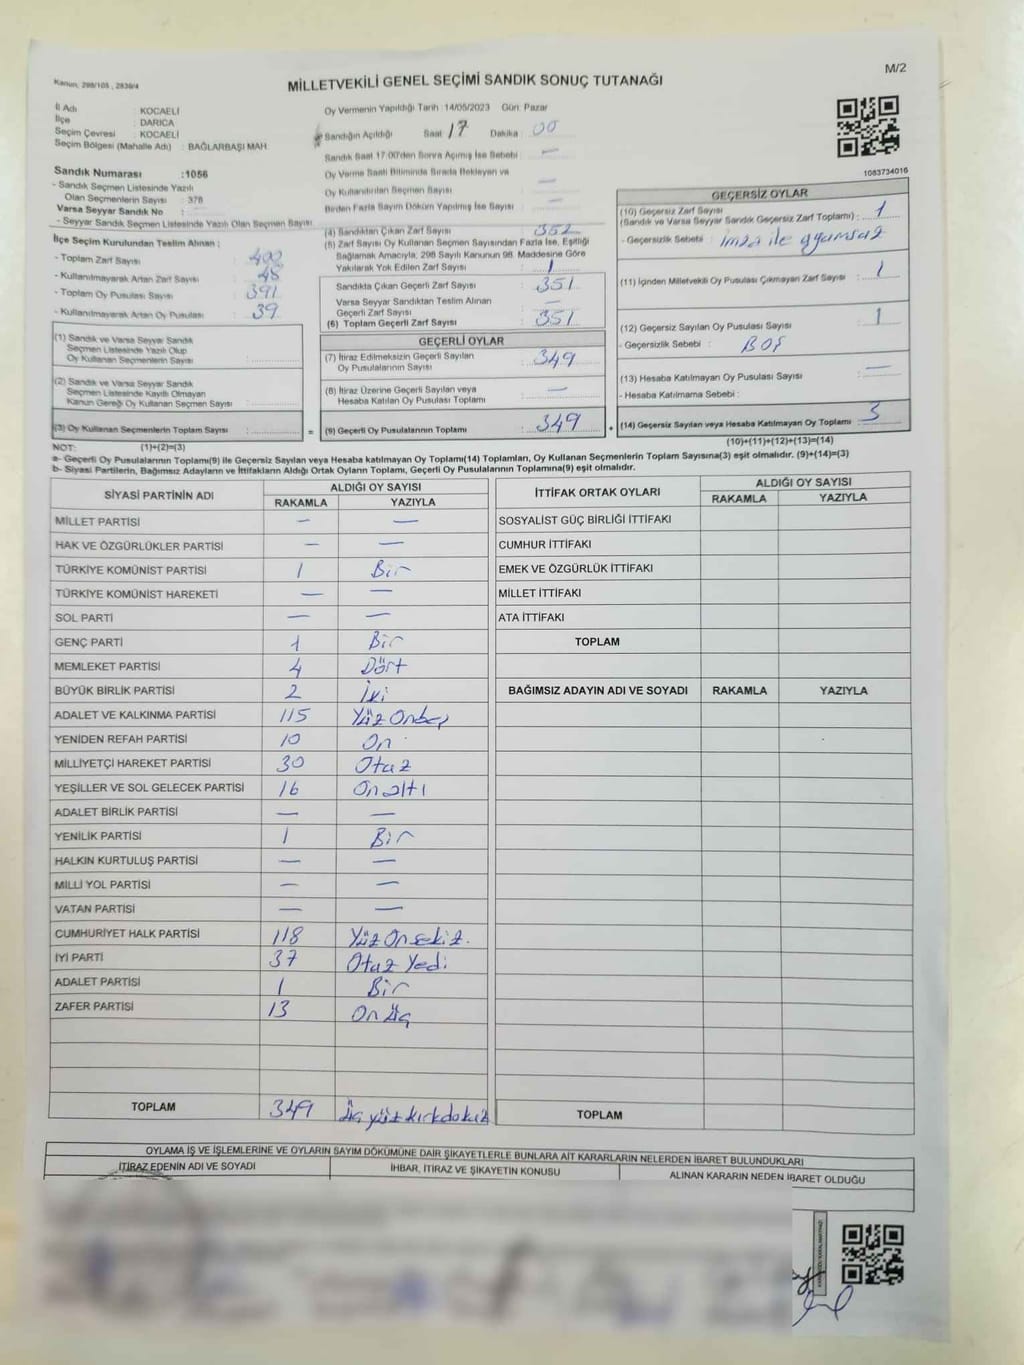 Kanun, 298/105 , 2839/4
MİLLETVEKİLİ GENEL SEÇİMİ SANDIK SONUÇ TUTANAĞI
M/2
İl Adı : KOCAELİ
İlçe : DARICA
Seçim Çevresi : KOCAELİ
Seçim Bölgesi (Mahalle Adı) : BAĞLARBAŞI MAH
Oy Vermenin Yapıldığı Tarih :14/05/2023 Gün: Pazar
Sandığın Açıldığı Saat 17 Dakika : 00
Sandık Saat 17:00'den Sonra Açımış İse Sebebi : —
Oy Verme Saati Bitiminde Sırada Bekleyen ve
Oy Kullandırılan Seçmen Sayısı : —
Birden Fazla Sayım Döküm Yapılmış İse Sayısı : —
1083734016
Sandık Numarası :1056
- Sandık Seçmen Listesinde Yazılı
Olan Seçmenlerin Sayısı : 378
Varsa Seyyar Sandık No :
- Seyyar Seçmen Listesinde Yazılı Olan Seçmen Sayısı
İlçe Seçim Kurulundan Teslim Alınan :
- Toplam Zarf Sayısı :
- Kullanılmayarak Artan Zarf Sayısı : 48
- Toplam Oy Pusulası Sayısı : 391
- Kullanılmayarak Artan Oy Pusulası : 39
(1) Sandık ve Varsa Seyyar Sandık
Seçmen Listesinde Yazılı Olup
Oy Kullanan Seçmenlerin Sayısı :
(2) Sandık ve Varsa Seyyar Sandık
Seçmen Listesinde Kayıtlı Olmayan
Kanun Gereği Oy Kullanan Seçmen Sayısı :
(3) Oy Kullanan Seçmenlerin Toplam Sayısı :
(4) Sandıktan Çıkan Zarf Sayısı : 352
(5) Zarf Sayısı Oy Kullanan Seçmen Sayısından Fazla İse, Eşitliği
Sağlamak Amacıyla; 298 Sayılı Kanunun 98. Maddesine Göre
Yakılarak Yok Edilen Zarf Sayısı : 1
Sandıkta Çıkan Geçerli Zarf Sayısı : 351
Varsa Seyyar Sandıktan Teslim Alınan
Geçerli Zarf Sayısı : —
(6) Toplam Geçerli Zarf Sayısı : 351
GEÇERLİ OYLAR
(7) İtiraz Edilmeksizin Geçerli Sayılan
Oy Pusulalarının Sayısı : 349
(8) İtiraz Üzerine Geçerli Sayılan veya
Hesaba Katılan Oy Pusulası Toplamı : —
= (9) Geçerli Oy Pusulalarının Toplamı : 349 +
GEÇERSİZ OYLAR
(10) Geçersiz Zarf Sayısı
(Sandık ve Varsa Seyyar Sandık Geçersiz Zarf Toplamı) : 1
- Geçersizlik Sebebi : imza ile uyumsuz
(11) İçinden Milletvekili Oy Pusulası Çıkmayan Zarf Sayısı : 1
(12) Geçersiz Sayılan Oy Pusulası Sayısı : 1
- Geçersizlik Sebebi : BOŞ
(13) Hesaba Katılmayan Oy Pusulası Sayısı : —
- Hesaba Katılmama Sebebi :
(14) Geçersiz Sayılan veya Hesaba Katılmayan Oy Toplamı : 3
NOT: (1)+(2)=(3) (10)+(11)+(12)+(13)=(14)
a- Geçerli Oy Pusulalarının Toplamı(9) ile Geçersiz Sayılan veya Hesaba Katılmayan Oy Toplamı(14) Toplamları, Oy Kullanan Seçmenlerin Toplam Sayısına(3) eşit olmalıdır. (9)+(14)=(3)
b- Siyasi Partilerin, Bağımsız Adayların ve İttifakların Aldığı Ortak Oyların Toplamı, Geçerli Oy Pusulalarının Toplamına(9) eşit olmalıdır.
SİYASİ PARTİNİN ADI ALDIĞI OY SAYISI
RAKAMLA YAZIYLA
MİLLET PARTİSİ — —
HAK VE ÖZGÜRLÜKLER PARTİSİ — —
TÜRKİYE KOMÜNİST PARTİSİ 1 Bir
TÜRKİYE KOMÜNİST HAREKETİ — —
SOL PARTİ — —
GENÇ PARTİ 1 Bir
MEMLEKET PARTİSİ 4 Dört
BÜYÜK BİRLİK PARTİSİ 2 İki
ADALET VE KALKINMA PARTİSİ 115 Yüz Onbeş
YENİDEN REFAH PARTİSİ 10 On
MİLLİYETÇİ HAREKET PARTİSİ 30 Otuz
YEŞİLLER VE SOL GELECEK PARTİSİ 16 On altı
ADALET BİRLİK PARTİSİ — —
YENİLİK PARTİSİ 1 Bir
HALKIN KURTULUŞ PARTİSİ — —
MİLLİ YOL PARTİSİ — —
VATAN PARTİSİ — —
CUMHURİYET HALK PARTİSİ 118 Yüz On sekiz.
İYİ PARTİ 37 Otuz Yedi
ADALET PARTİSİ 1 Bir
ZAFER PARTİSİ 13 On Üç
TOPLAM 349 üç yüz kırk dokuz
İTTİFAK ORTAK OYLARI ALDIĞI OY SAYISI
RAKAMLA YAZIYLA
SOSYALİST GÜÇ BİRLİĞİ İTTİFAKI
CUMHUR İTTİFAKI
EMEK VE ÖZGÜRLÜK İTTİFAKI
MİLLET İTTİFAKI
ATA İTTİFAKI
TOPLAM
BAĞIMSIZ ADAYIN ADI VE SOYADI RAKAMLA YAZIYLA
TOPLAM
OYLAMA İŞ VE İŞLEMLERİNE VE OYLARIN SAYIM DÖKÜMÜNE DAİR ŞİKAYETLERLE BUNLARA AİT KARARLARIN NELERDEN İBARET BULUNDUKLARI
İTİRAZ EDENİN ADI VE SOYADI İHBAR, İTİRAZ VE ŞİKAYETİN KONUSU ALINAN KARARIN NEDEN İBARET OLDUĞU